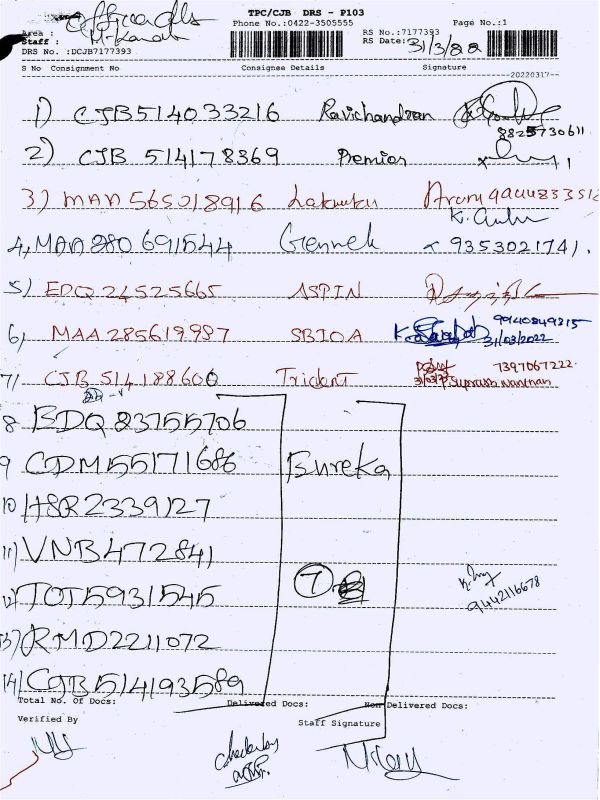 TPC/CJB DRS - P103
Phone No.:0422-3505555 Page No.:1
Area :
Staff :
RS No.:7177393
RS Date: 31/3/22
DRS No. :DCJB7177393
S No Consignment No Consignee Details Signature
--20220317--
1) CJB514033216 Ravichandran
8825730611
2) CJB 514178369 Premier
3) MAA 565018916 Lakmutu Arun 9944833512
4, MAA 280 691544 Gennek 9353021741.
5) EDQ 24525665 ASPIN
6, MAA 285619987 SBIOA 9940849315
31/03/2022
7) CJB 514188600 Trident 7397067222
8 BDQ 23755706
9 CDM155171686 Eureka
10 HSR2339127
11) VNB472841
12) TOJ5931545 7
9442116678
13) RMD2211072
14) CJB514193589
Total No. Of Docs: Delivered Docs: Non Delivered Docs:
Verified By Staff Signature